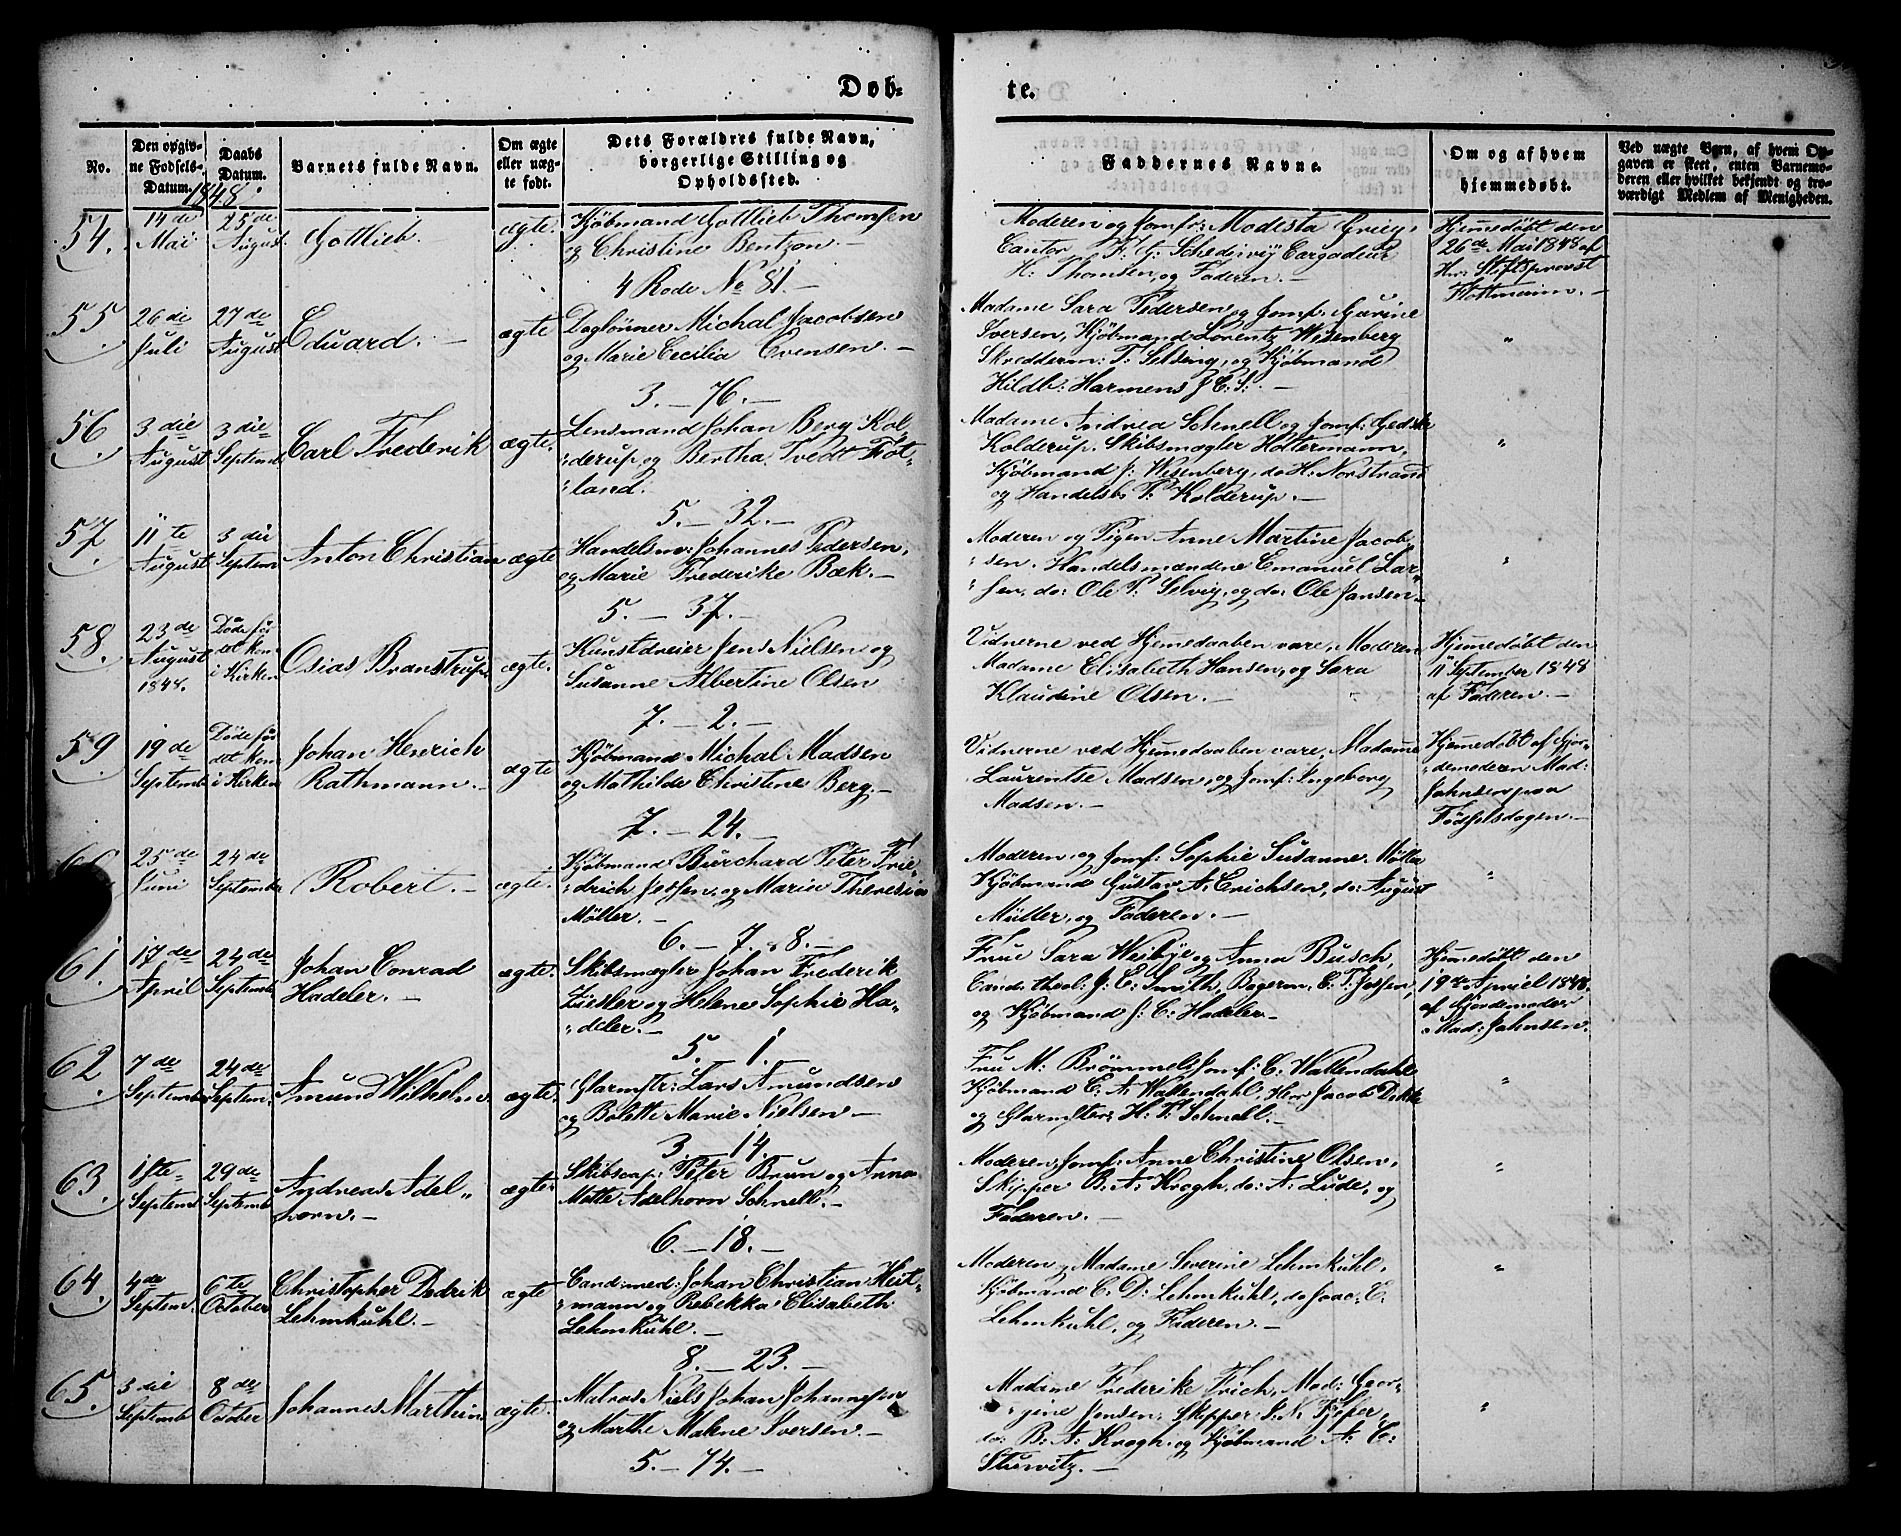 Døb-
te.
No.
Den opgiv-
ne Fødsels-
Datum.
Daabs
Datum.
1848.
Barnets fulde Navn.
Om ægte
eller uæg-
te født.
Dets Forældres fulde Navn,
borgerlige Stilling og
Opholdssted.
Faddernes Navne.
Om og af hvem
hjemmedøbt.
Ved uægte Børn, af hvem Op-
gaven er skeet, enten Barnemo-
deren eller hvilket bekjendt og tro-
værdigt Medlem af Menigheden.
54.
14de
Mai
25de
August
Gottlieb.
ægte.
Kjøbmand Gottlieb Thomsen
og Christine Bentzon —
4 Rode No 81. —
Moderen og Jomfr: Modesta Grieg,
Cantor F. G: Schediwy Cargadeur
H. Thomsen, og Faderen. —
Hjemmedøbt den
26de Mai 1848 af
Hr: Stiftsprovst
55.
26de
Juli
27de
August
Eduard. —
ægte
Daglønner Michal Jacobsen
og Marie Cecilia Evensen. —
3. — 76. —
Madame Sara Pedersen og Jomf: Gurine
Iversen, Kjøbmand Lorentz Wesenberg
Skredderm: T: Selsing, og Kjøbmand
Hildb: Harmens J. C. S: —
"
56
3die
August
3die
Septemb
Carl Frederik
ægte.
Lensmand Johan Berg Kol-
:derup, og Bertha Tvedt Føt-
:land.
5. — 32. —
Madame Andrea Schnell og Jomf: Gedske
Kolderup. Skibsmægler Holtermann,
Kjøbmand J: Wesenberg, do H. Norstrand
og Handelsb: P: Kolderup. —
"
57.
11te
August
3die
Septem
Anton Christian
ægte
Handelsm: Johannes Pedersen,
og Marie Frederike Bæk. —
5. — 37. —
Moderen og Pigen Anne Martine Jacob-
:sen. Handelsmændene Emanuel Lar-
:sen, do: Ole P. Selvig, og do: Ole Jansen —
"
58.
23de
August
1848.
Døde før
det kom
i Kirken
Osias Branstrup
ægte.
Kunstdreier Jens Nielsen og
Susanne Albertine Olsen
7. — 2. —
Vidnerne ved Hjemedaaben vare, Moderen
Madame Elisabeth Hansen, og Sara
Klaudine Olsen. —
Hjemmedøbt den
11 September 1848
af Faderen. —
59
19de
Septemb
Døde før
det kom
i Kirken
Johan Henrich
Rathmann. —
ægte
Kjøbmand Michal Madsen
og Mathilde Christine Berg. —
7. — 24. —
Vidnerne ved Hjemmedaaben vare, Madame
Laurentse Madsen, og Jomf: Ingeborg
Madsen. —
Hjemedøbt af Gjor-
:demoderen Mad:
Jahnsen paa
Fødselsdagen. —
25de
Juni
24de
Septemb
Robert. —
ægte.
Kjøbmand Burchard Peter Frie-
:drich Jessen, og Maria Theresia
Møller. —
6. — 7. 8. —
Moderen, og Jomf: Sophie Susanne Møller
Kjøbmand Gustav A. Erichsen, do: August
Müller, og Faderen. —
"
61.
17de
April
24de
Septemb
Johan Conrad
Hadeler. —
ægte.
Skibsmægler Johan Frederik
Ziesler og Helene Sophie Ha-
:deler. —
5. 1. —
Frue Sara Weibye og Anna Busch,
Cand: theol: J: E: Smith, Bagerm. C. T. Jessen,
og Kjøbmand J: C: Hadeler —
Hjemmedøbt den
19de Apriel 1848.
af Gjordemoder
Mad: Jahnsen.
62
7de
Septemb
24de
Septem.
Amund Wilhelm
ægte.
Glarmstr: Lars Amundsen
og Bolette Marie Nielsen —
3. 14. —
Fru M. Brømmel, Jomf: C: Wallendahl
Kjøbmand C. A. Wallendahl. Herr Jacob Dekke
og Glarmster: H. T. Schnell. —
"
63.
1ste
Septemb
29de
Septemb
Andreas Adel-
horn. —
ægte.
Skibscap: Peter Brun og Anna
Mette Adelhorn Schnell. —
6. — 18. —
Moderen, Jomf: Anne Christine Olsen,
Skipper B. A. Krogh, do: A: Lude, og
Faderen. —
"
64.
4de
Septem.
6te
October
Christopher Dedrik
Lehmkuhl. —
ægte
Cand: med: Johan Christian Heit-
:mann og Rebekka Elisabeth
Lehmkuhl. —
8. — 23. —
Moderen, og Madame Severine Lehmkuhl,
Kjøbmand C. D: Lehmkuhl, do Joac: E.
Lehmkuhl, og Faderen. —
"
65.
3die
Septemb
8de
October
Johannes Marthin
ægte.
Matros Niels Johan Johannesen
og Marthe Malene Iversen —
5. — 74. —
Madame Frederike Frich, Mad: Geor-
:gine Jensen, Skipper
do: B: A: Krogh, og Kjøbmand A: C:
Sturvitz. —
"